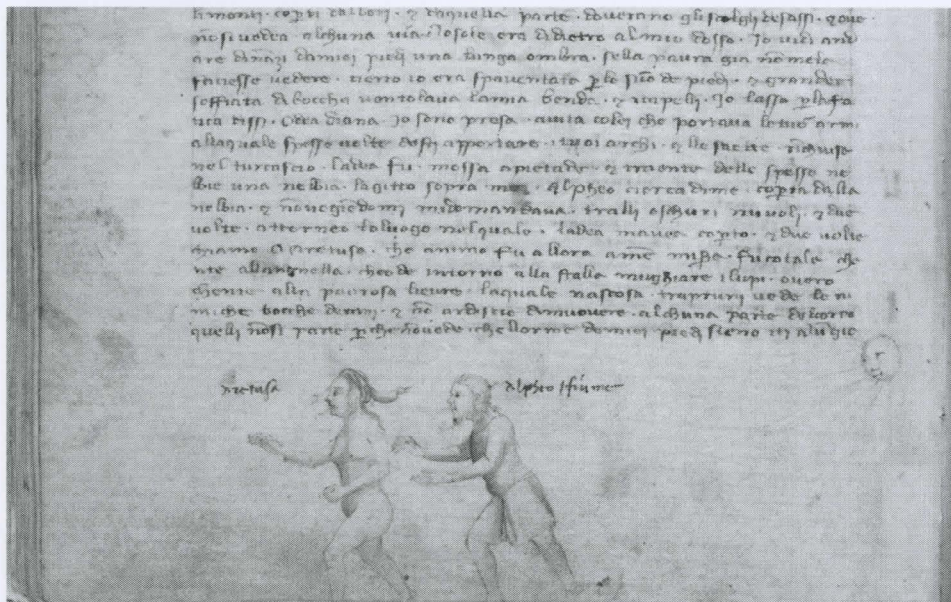 li monti · coperti dalbori · & daquella parte · doverano gli scolgli de sassi · & ove
nō si vedea alchuna via · ilsole era didietro almio dosso · Io vidi and
are dināzi damiei piedi una lunga ombra · sella paura gia nō me la
facesse vedere · certo io era spaventata
soffiata di boccha ventolava la mia benda · & icapelli · Io lassa
tica dissi · O dea diana · Io sono presa · aiuta colei che portava letue armi
allaquale spesse volte desti apportare · ituoi archi · & lle saette · richiuse
nel turcascio · ladea fu · mossa apietade · & traente delle spesse ne
bie una nebbia · lagitto sopra me · Alpheo cierca dime · coperta dalla
nebbia · & mi domandava · tralli oschuri nuvoli · & due
volte · attorneo loluogo nelquale · ladea mavea coperto · & due volte
chiamo O Aretusa · che animo fu allora ame misera · fu cotale che
nte allangnella · che ode intorno alla stalla mughiare ilupi · overo
chente alla paurosa lievre · laquale nascosa · vede le ni
miche bocche decani · & nō ardiscie dimuovere · alchuna parte delcorpo
quelli nō si parte che nō vede · che llorme demiei piedi sieno
Aretusa
Alpheo fiume